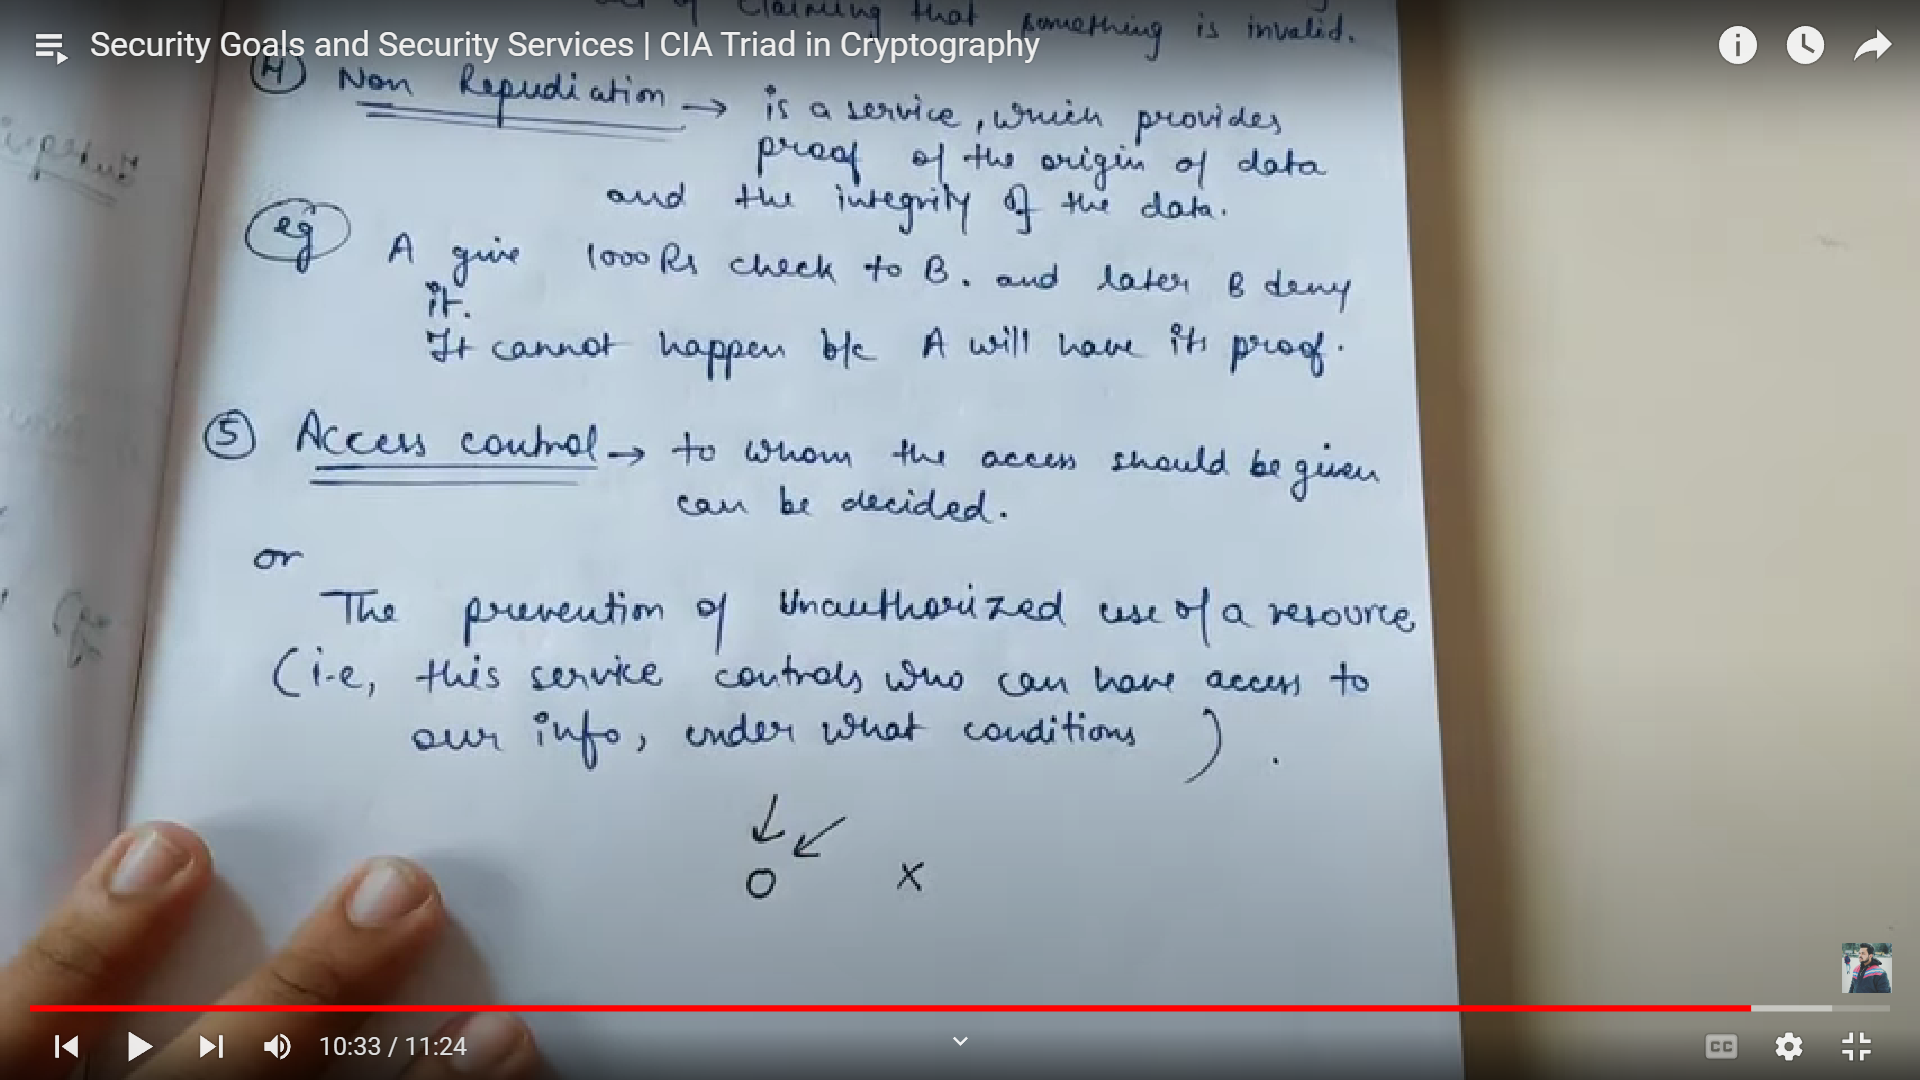 of claiming that something is invalid.
Security Goals and Security Services | CIA Triad in Cryptography
4 Non Repudiation → is a service, which provides
proof of the origin of data
and the integrity of the data.
eg A give 1000 Rs check to B. and later B deny
it.
It cannot happen b/c A will have its proof.
5 Access control → to whom the access should be given
can be decided.
or
The prevention of Unauthorized use of a resource
(i.e, this service controls who can have access to
our info, under what conditions ) .
O X
10:33 / 11:24
CC